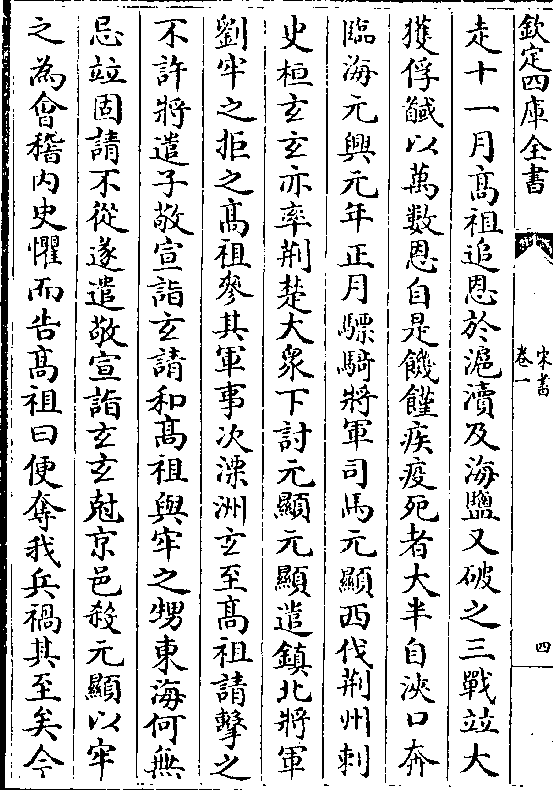 欽定四庫全書
宋書
卷一
四
走十一月髙祖追恩於滬瀆及海鹽又破之三戰竝大
獲俘馘以萬數恩自是饑饉疾疫死者大半自浹口奔
臨海元興元年正月驃騎將軍司馬元顯西伐荆州刺
史桓玄玄亦率荆楚大衆下討元顯元顯遣鎮北將軍
劉牢之拒之髙祖參其軍事次溧洲玄至髙祖請擊之
不許將遣子敬宣詣玄請和髙祖與牢之甥東海何無
忌竝固請不從遂遣敬宣詣玄玄尅京邑殺元顯以牢
之為會稽内史懼而告髙祖曰便奪我兵禍其至矣今